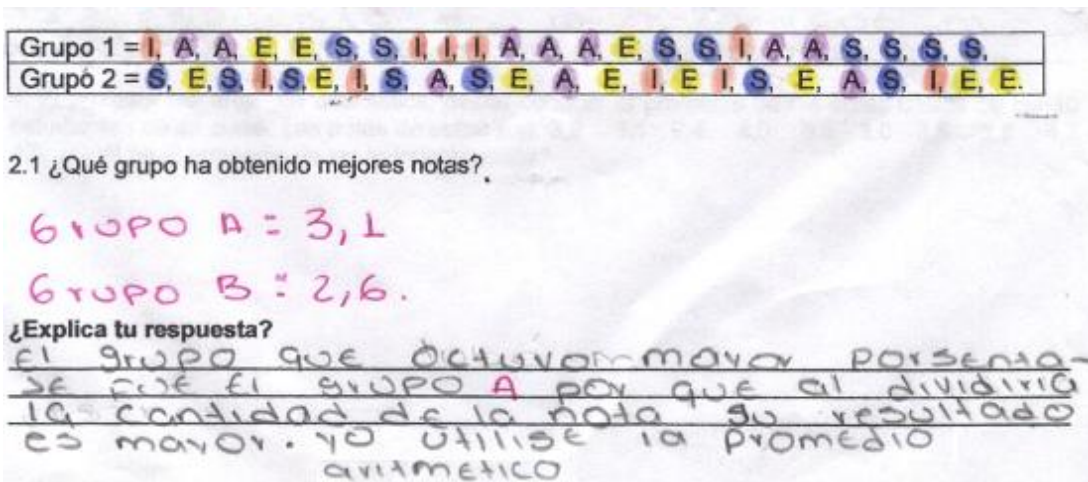 Grupo 1 = I, A, A, E, E, S, S, I, I, I, A, A, A, E, S, S, I, A, A, S, S, S, S,
Grupo 2 = S, E, S, I, S, E, I, S, A, S, E, A, E, I, E, I, S, E, A, S, I, E, E.
2.1 ¿Qué grupo ha obtenido mejores notas?
Grupo A = 3,1
Grupo B = 2,6.
¿Explica tu respuesta?
El grupo que octuvo mayor porsenta-
se fue el grupo A por que al dividirla
la cantidad de la nota su resultado
es mayor. yo utilise la promedio
aritmetico